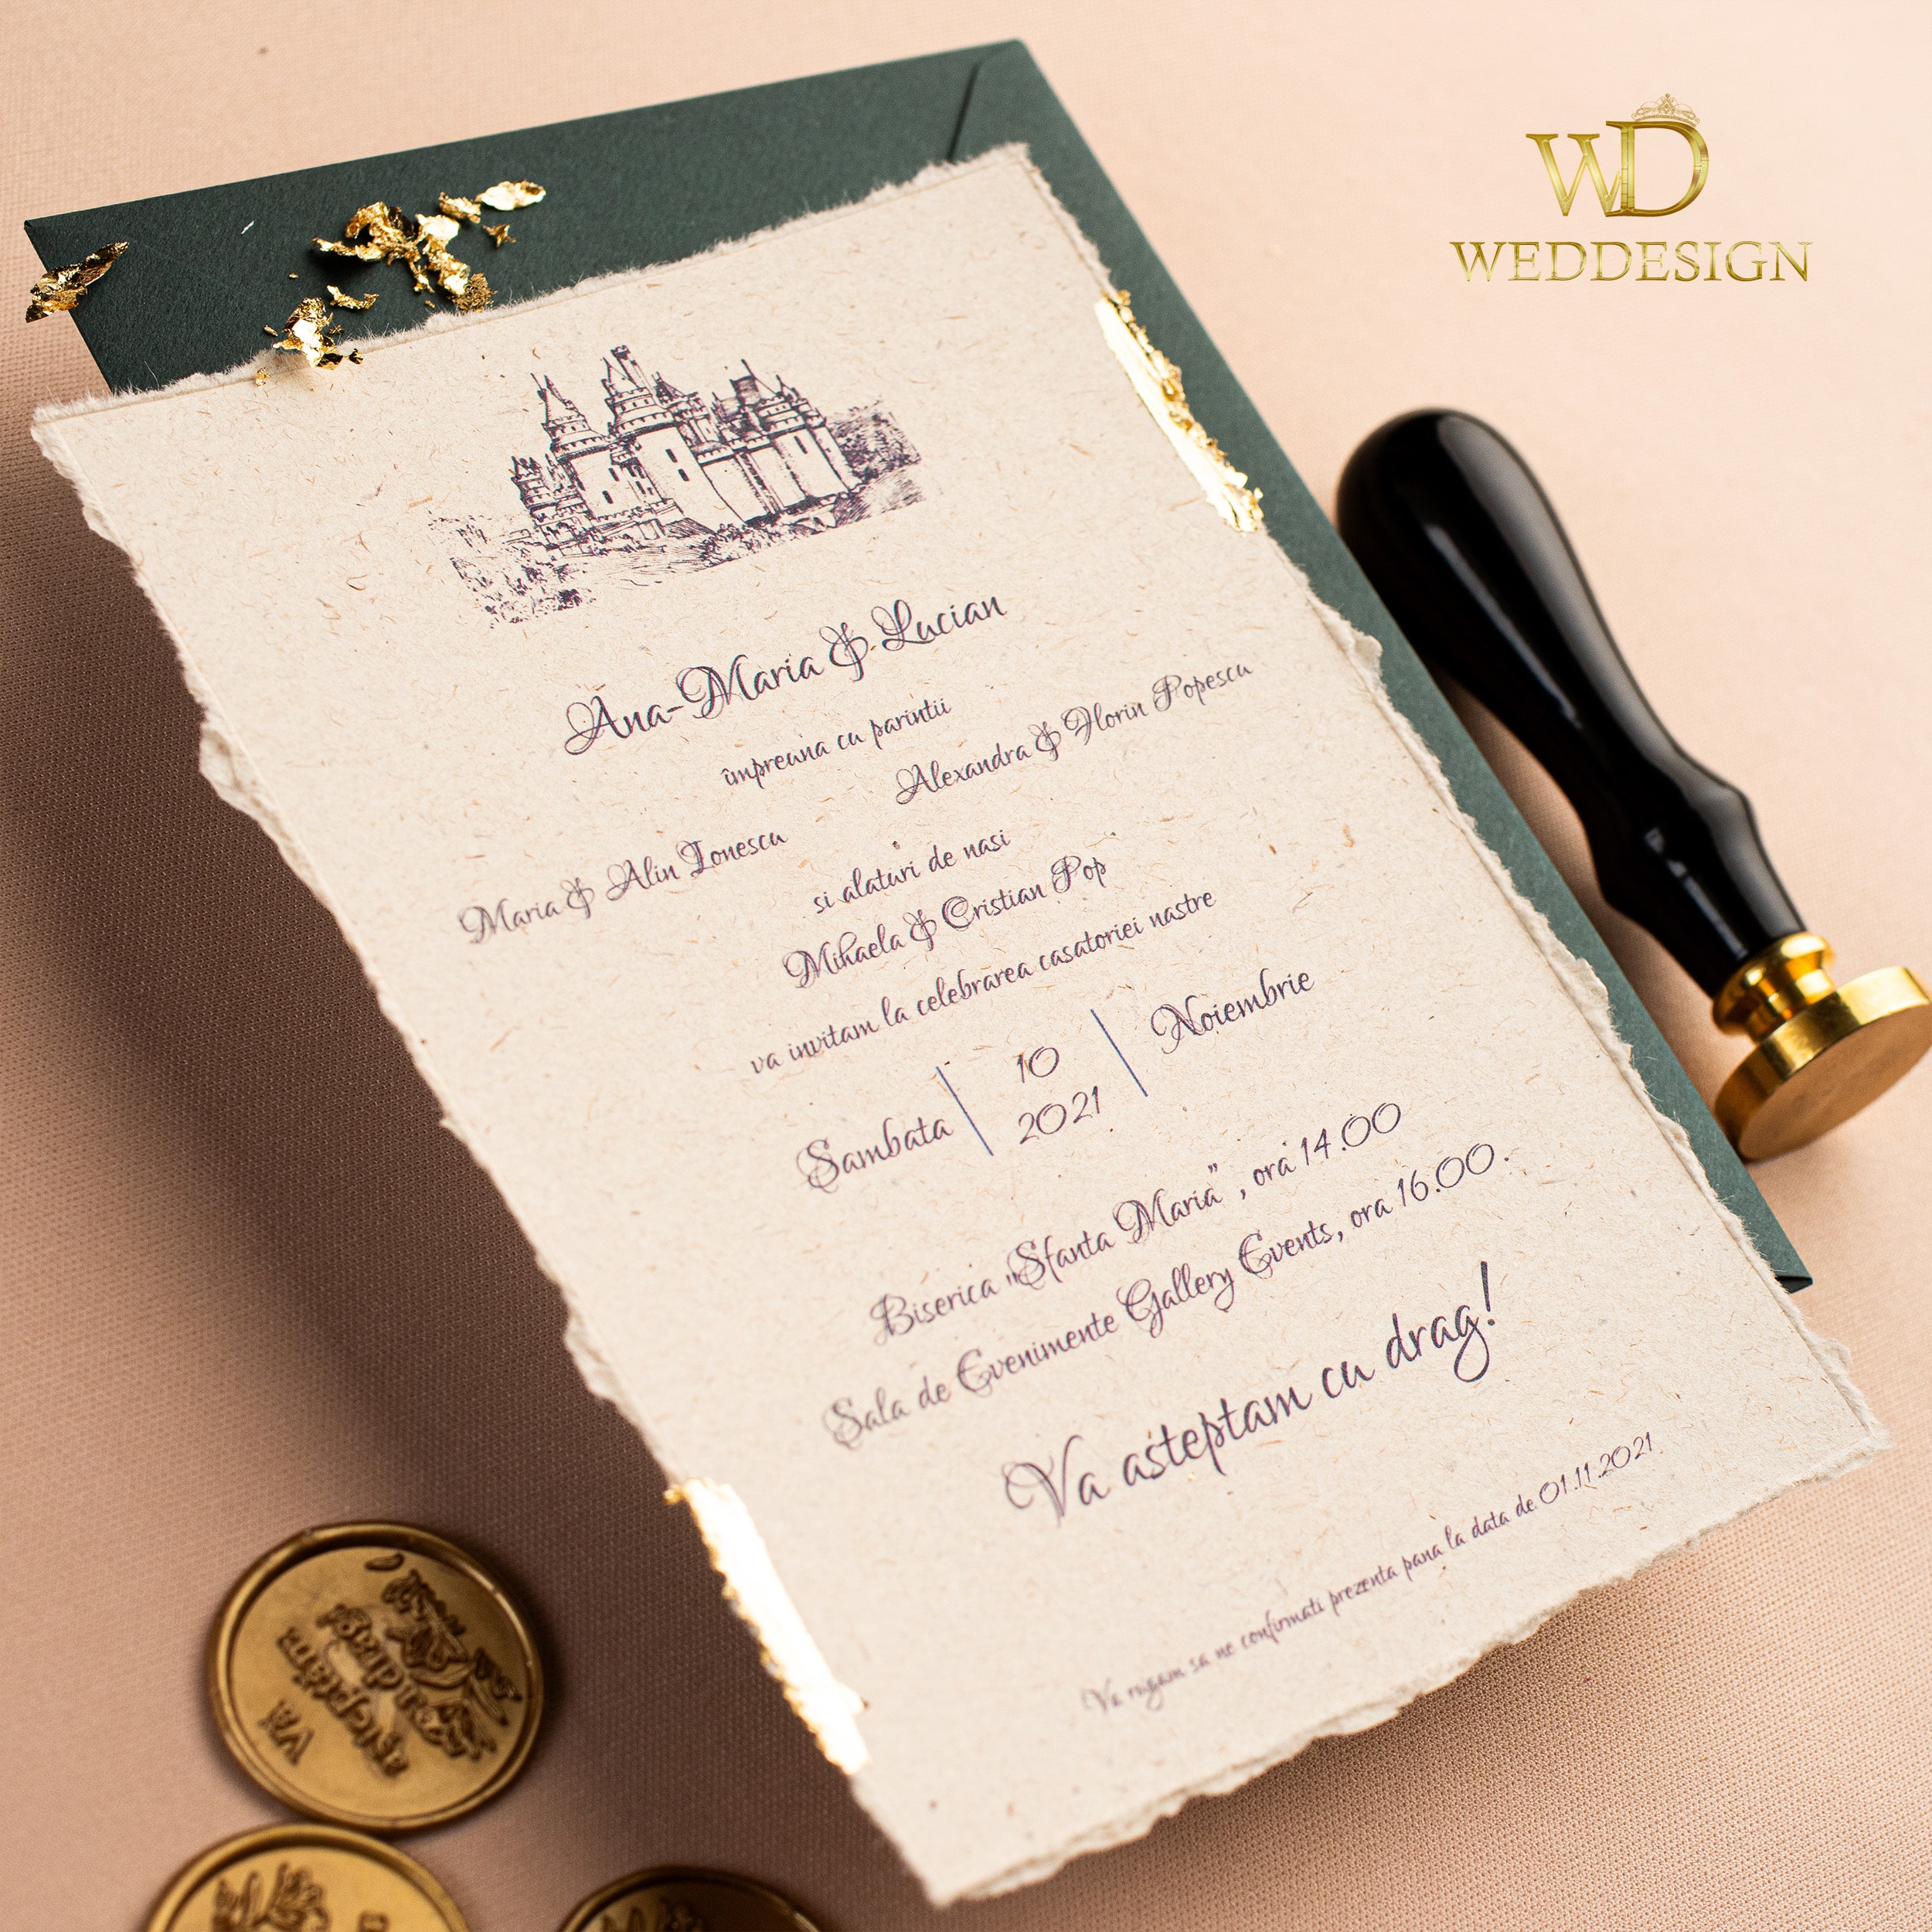 WD
WEDDESIGN
Ana-Maria & Lucian
împreuna cu parintii
Maria & Alin Ionescu
Alexandra & Florin Popescu
si alaturi de nasi
Mihaela & Cristian Pop
va invitam la celebrarea casatoriei nastre
Sambata | 10 | Noiembrie
2021
Biserica "Sfanta Maria", ora 14.00
Sala de Evenimente Gallery Events, ora 16.00.
Va asteptam cu drag!
Va rugam sa ne confirmati prezenta pana la data de 01.11.2021
Va
așteptăm
cu drag!